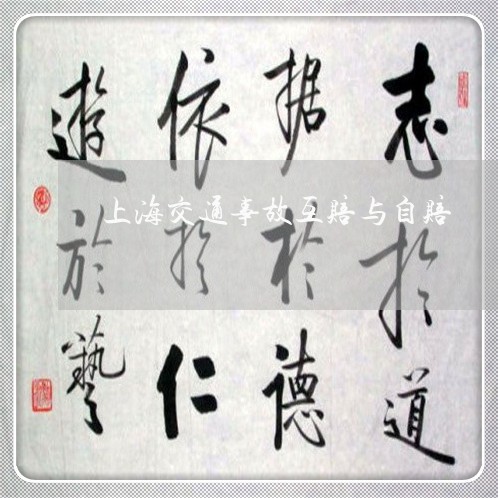 志於道
据於德
依於仁
遊於藝
上海交通事故互赔与自赔